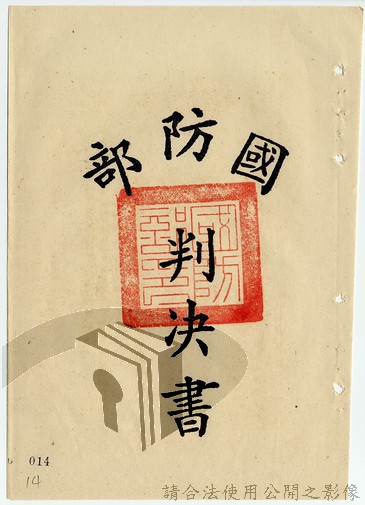 國防部
判決書
014
14
請合法使用公開之影像